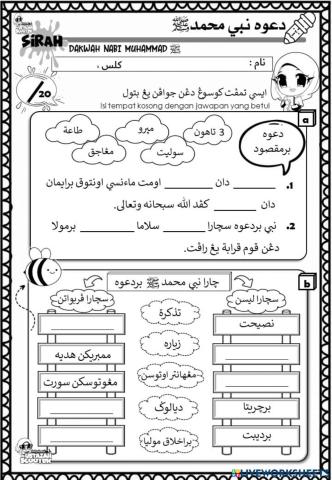 دعوه نبي محمد ﷺ
SiRAH
DAKWAH NABI MUHAMMAD ﷺ
نام :
کلس :
/20
ايسي تمڤت کوسوڠ دڠن جواڤن يڠ بتول
Isi tempat kosong dengan jawapan yang betul
a
طاعة
ميرو
3 تاهون
مڠاجق
سوليت
دعوه
برمقصود
1. ________ دان ________ اومت مأنسي اونتوق برايمان
دان ________ کڤد الله سبحانه وتعالى.
2. نبي بردعوه سچارا ________ سلاما ________ برمولا
دڠن قوم قرابة يڠ راڤت.
b
چارا نبي محمد ﷺ بردعوه
سچارا ڤربواتن
سچارا ليسن
تذکرة
نصيحت
زياره
ممبريکن هديه
مڠهانتر اوتوسن
مڠوتوسکن سورت
ديالوݢ
برچريتا
براخلاق موليا
برديبت
LIVEWORKSHEETS